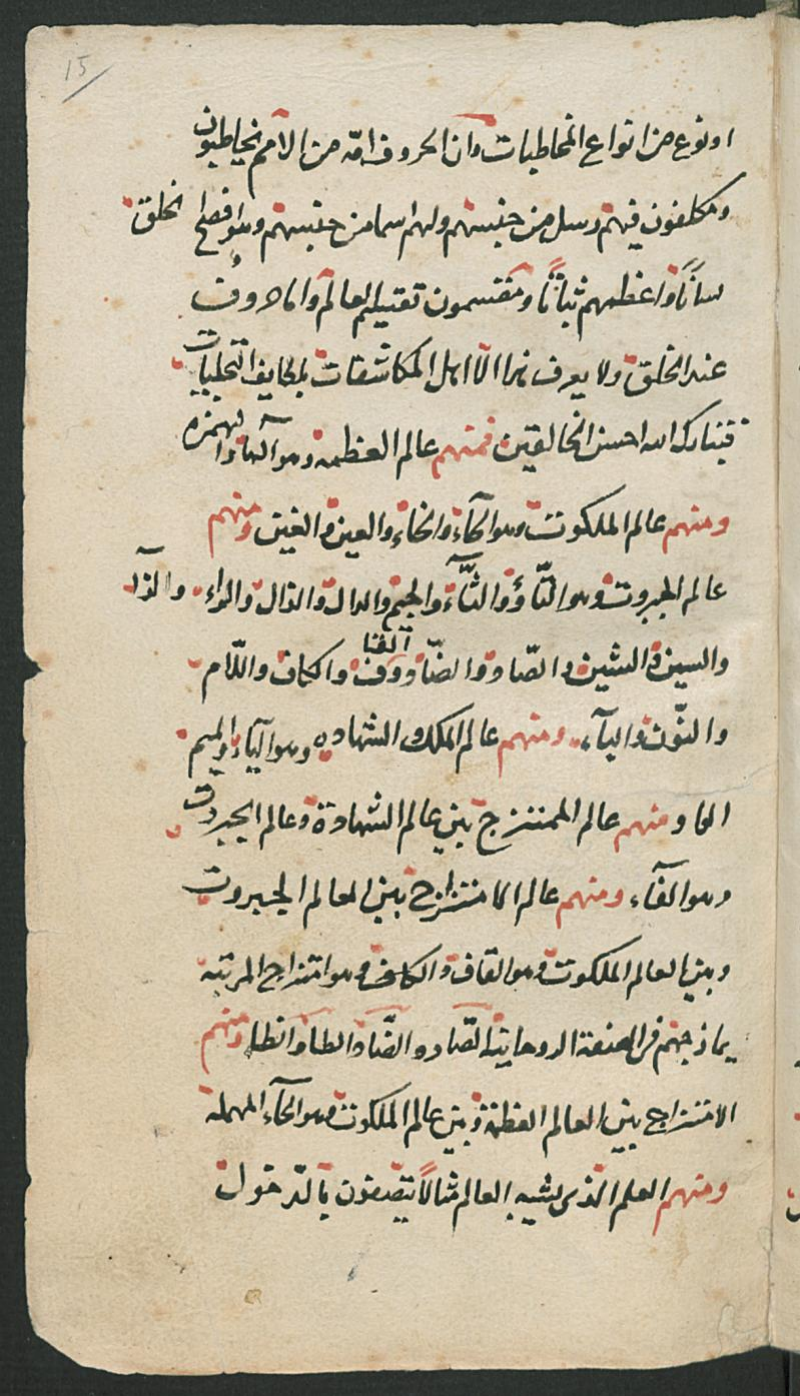 15
او نوع من انواع المخاطبات وان الحروف امّه من الامم يخاطبون
ومكلفون فيهم رسل من جنسهم ولهم اسما من جنسهم وهو افصح الخلق
لساناً واعظمهم ثباتاً ومقتسمون تقتيلهم العالم وانا معروف
عند الخلق ولا يعرف هذا الّا اهل المكاشفات بلطايف التجليات
فتبارك الله احسن الخالقين فمنهم عالم العظمه وهو الهآ والهمزه
ومنهم عالم الملكوت وهو الحآء والخاء والعين والغين ومنهم
عالم الجبروت وهو التّاؤ والثّآء والجيم والدال والذال والراء والزا
والسين والشين والصّاد والضّاد والقاف والكاف واللّام
والنّون واليآء ومنهم عالم الملك والشهاده وهو الباء والميم
الها ومنهم عالم الممتزج بين عالم الشهادة وعالم الجبروت
وهو الفآء ومنهم عالم الامتزاج بين العالم الجبروت
وبين العالم الملكوت وهو القاف والكاف وهو امتزاج المرتبه
يمازجهم فى الصنعة الروحانية الصّاد والضّاد والطا والظا ومنهم
الامتزاج بين العالم العظمة وبين عالم الملكوت وهو الحآء المهمله
ومنهم العلم الذى يشبه العالم مثالاً يتصفون بالدّخول